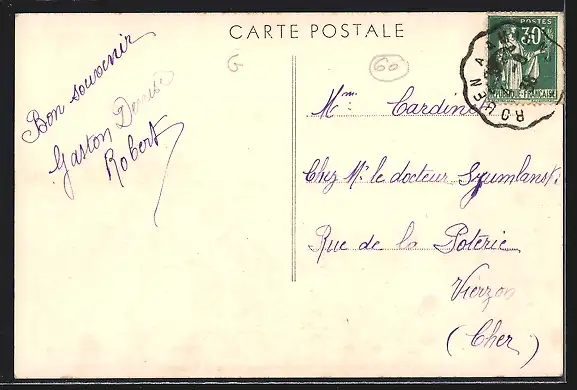 CARTE POSTALE
G
60
POSTES
30
RÉPUBLIQUE FRANÇAISE
ROUEN A
Bon souvenir
Gaston Denise
Robert
Mme Cardine
Chez Mr le docteur Szumlanski
Rue de la Poterie
Vierzon
(Cher)